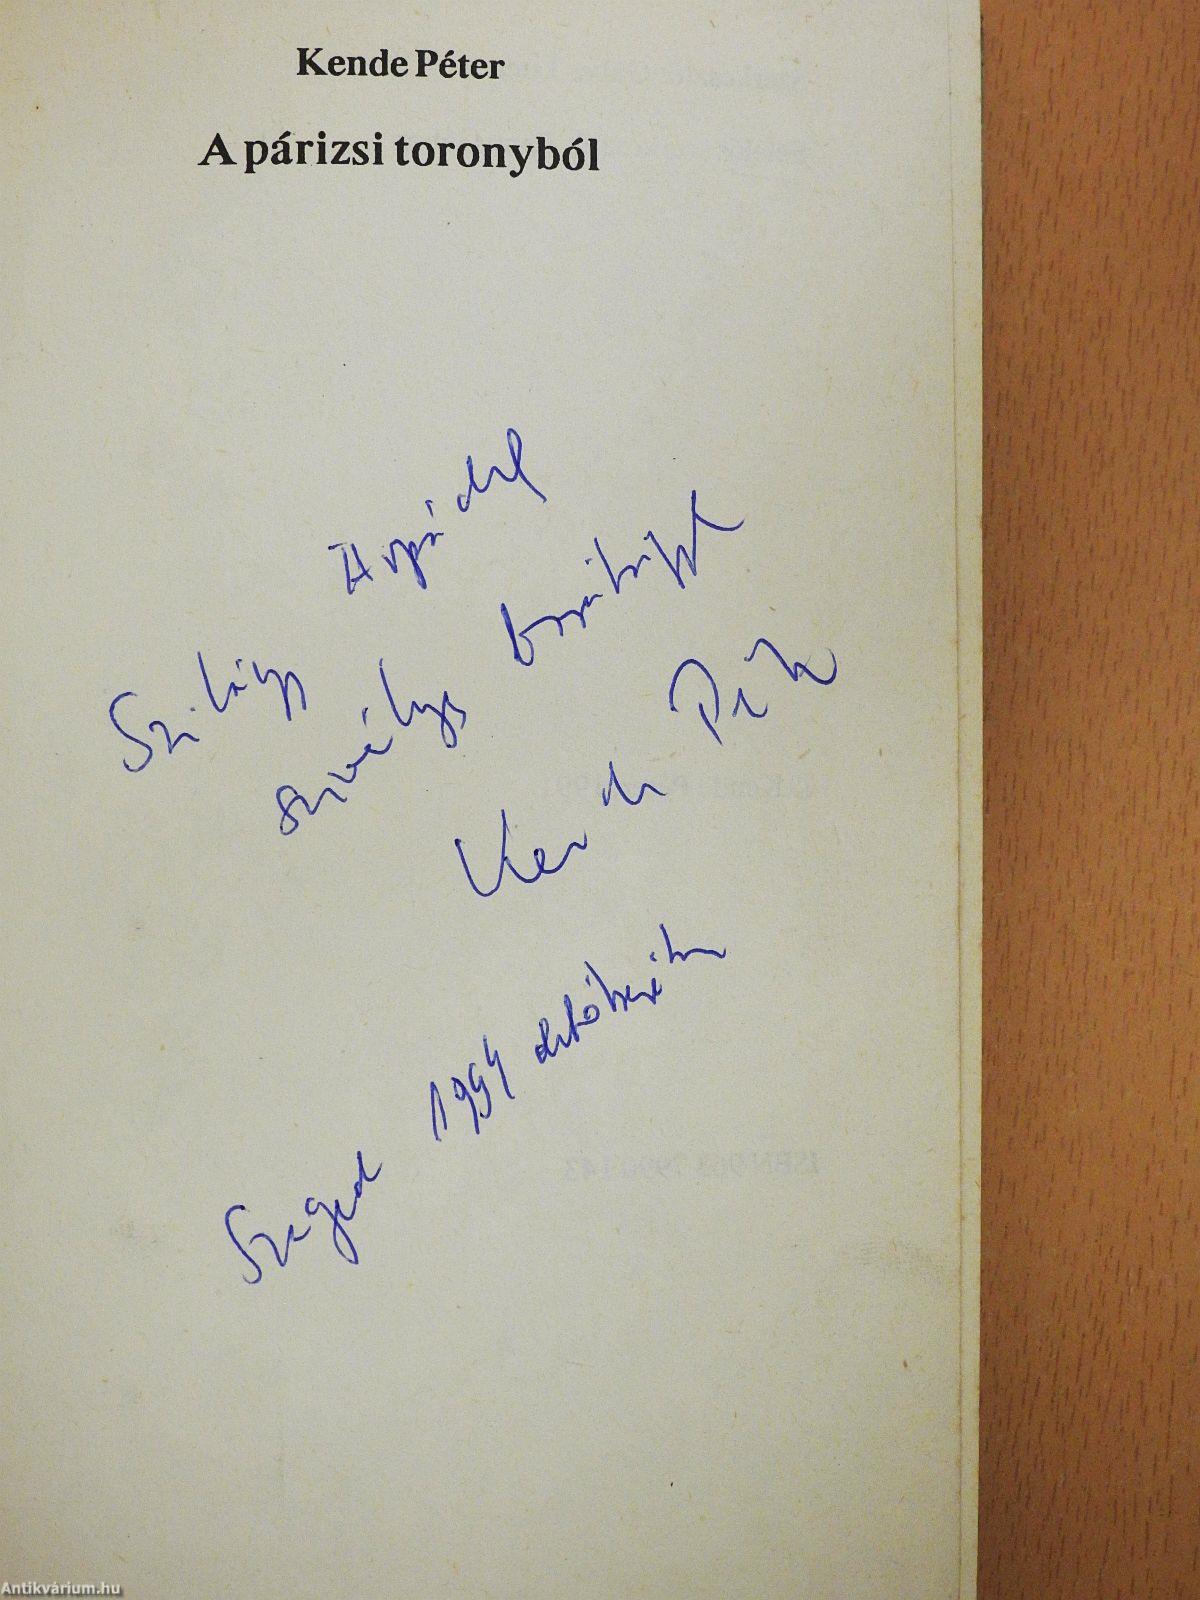 Kende Péter
A párizsi toronyból
Szilágyi Árpádnak
szívélyes barátsággal
Kende Péter
Szeged 1994 októberében
Antikvárium.hu